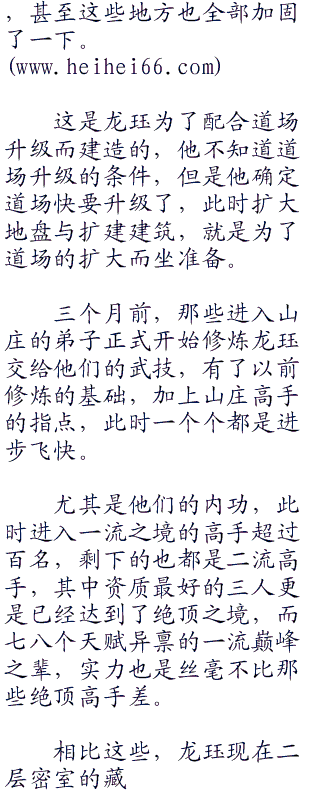 ，甚至这些地方也全部加固
了一下。
(www.heihei66.com)
这是龙珏为了配合道场
升级而建造的，他不知道道
场升级的条件，但是他确定
道场快要升级了，此时扩大
地盘与扩建建筑，就是为了
道场的扩大而坐准备。
三个月前，那些进入山
庄的弟子正式开始修炼龙珏
交给他们的武技，有了以前
修炼的基础，加上山庄高手
的指点，此时一个个都是进
步飞快。
尤其是他们的内功，此
时进入一流之境的高手超过
百名，剩下的也都是二流高
手，其中资质最好的三人更
是已经达到了绝顶之境，而
七八个天赋异禀的一流巅峰
之辈，实力也是丝毫不比那
些绝顶高手差。
相比这些，龙珏现在二
层密室的藏